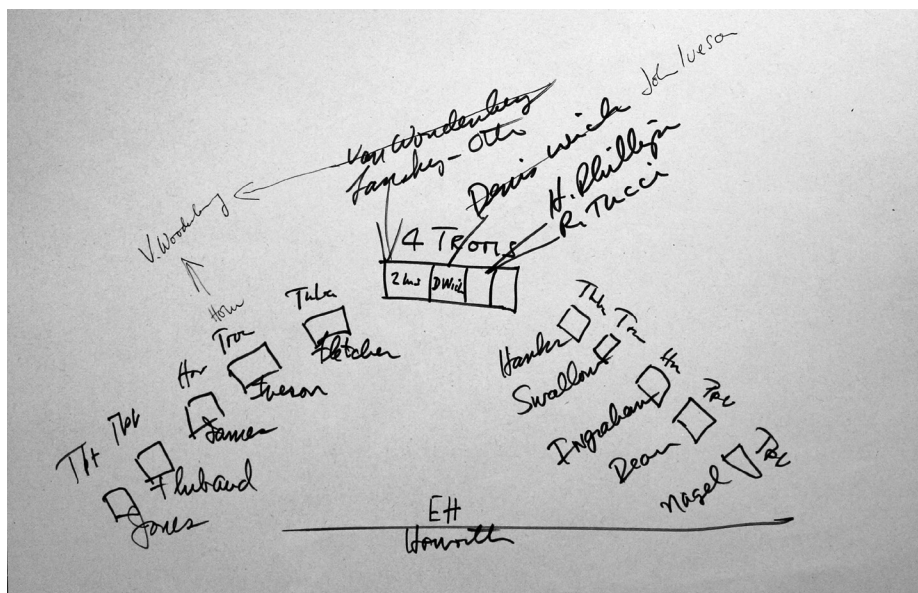 John Iveson
Van Woudenberg
Lansky-Otto
Denis Wick
H. Phillips
R. Tucci
V. Woudenberg
4 TROMS
2 hns
D Wick
Horn
Tuba
Fletcher
Trom
Iveson
Hor
James
Tpt
Tpt
Jones
Tba
Hanks
Tr
Swallow
Hn
Ingraham
Dean
Nagel
EH
Howarth